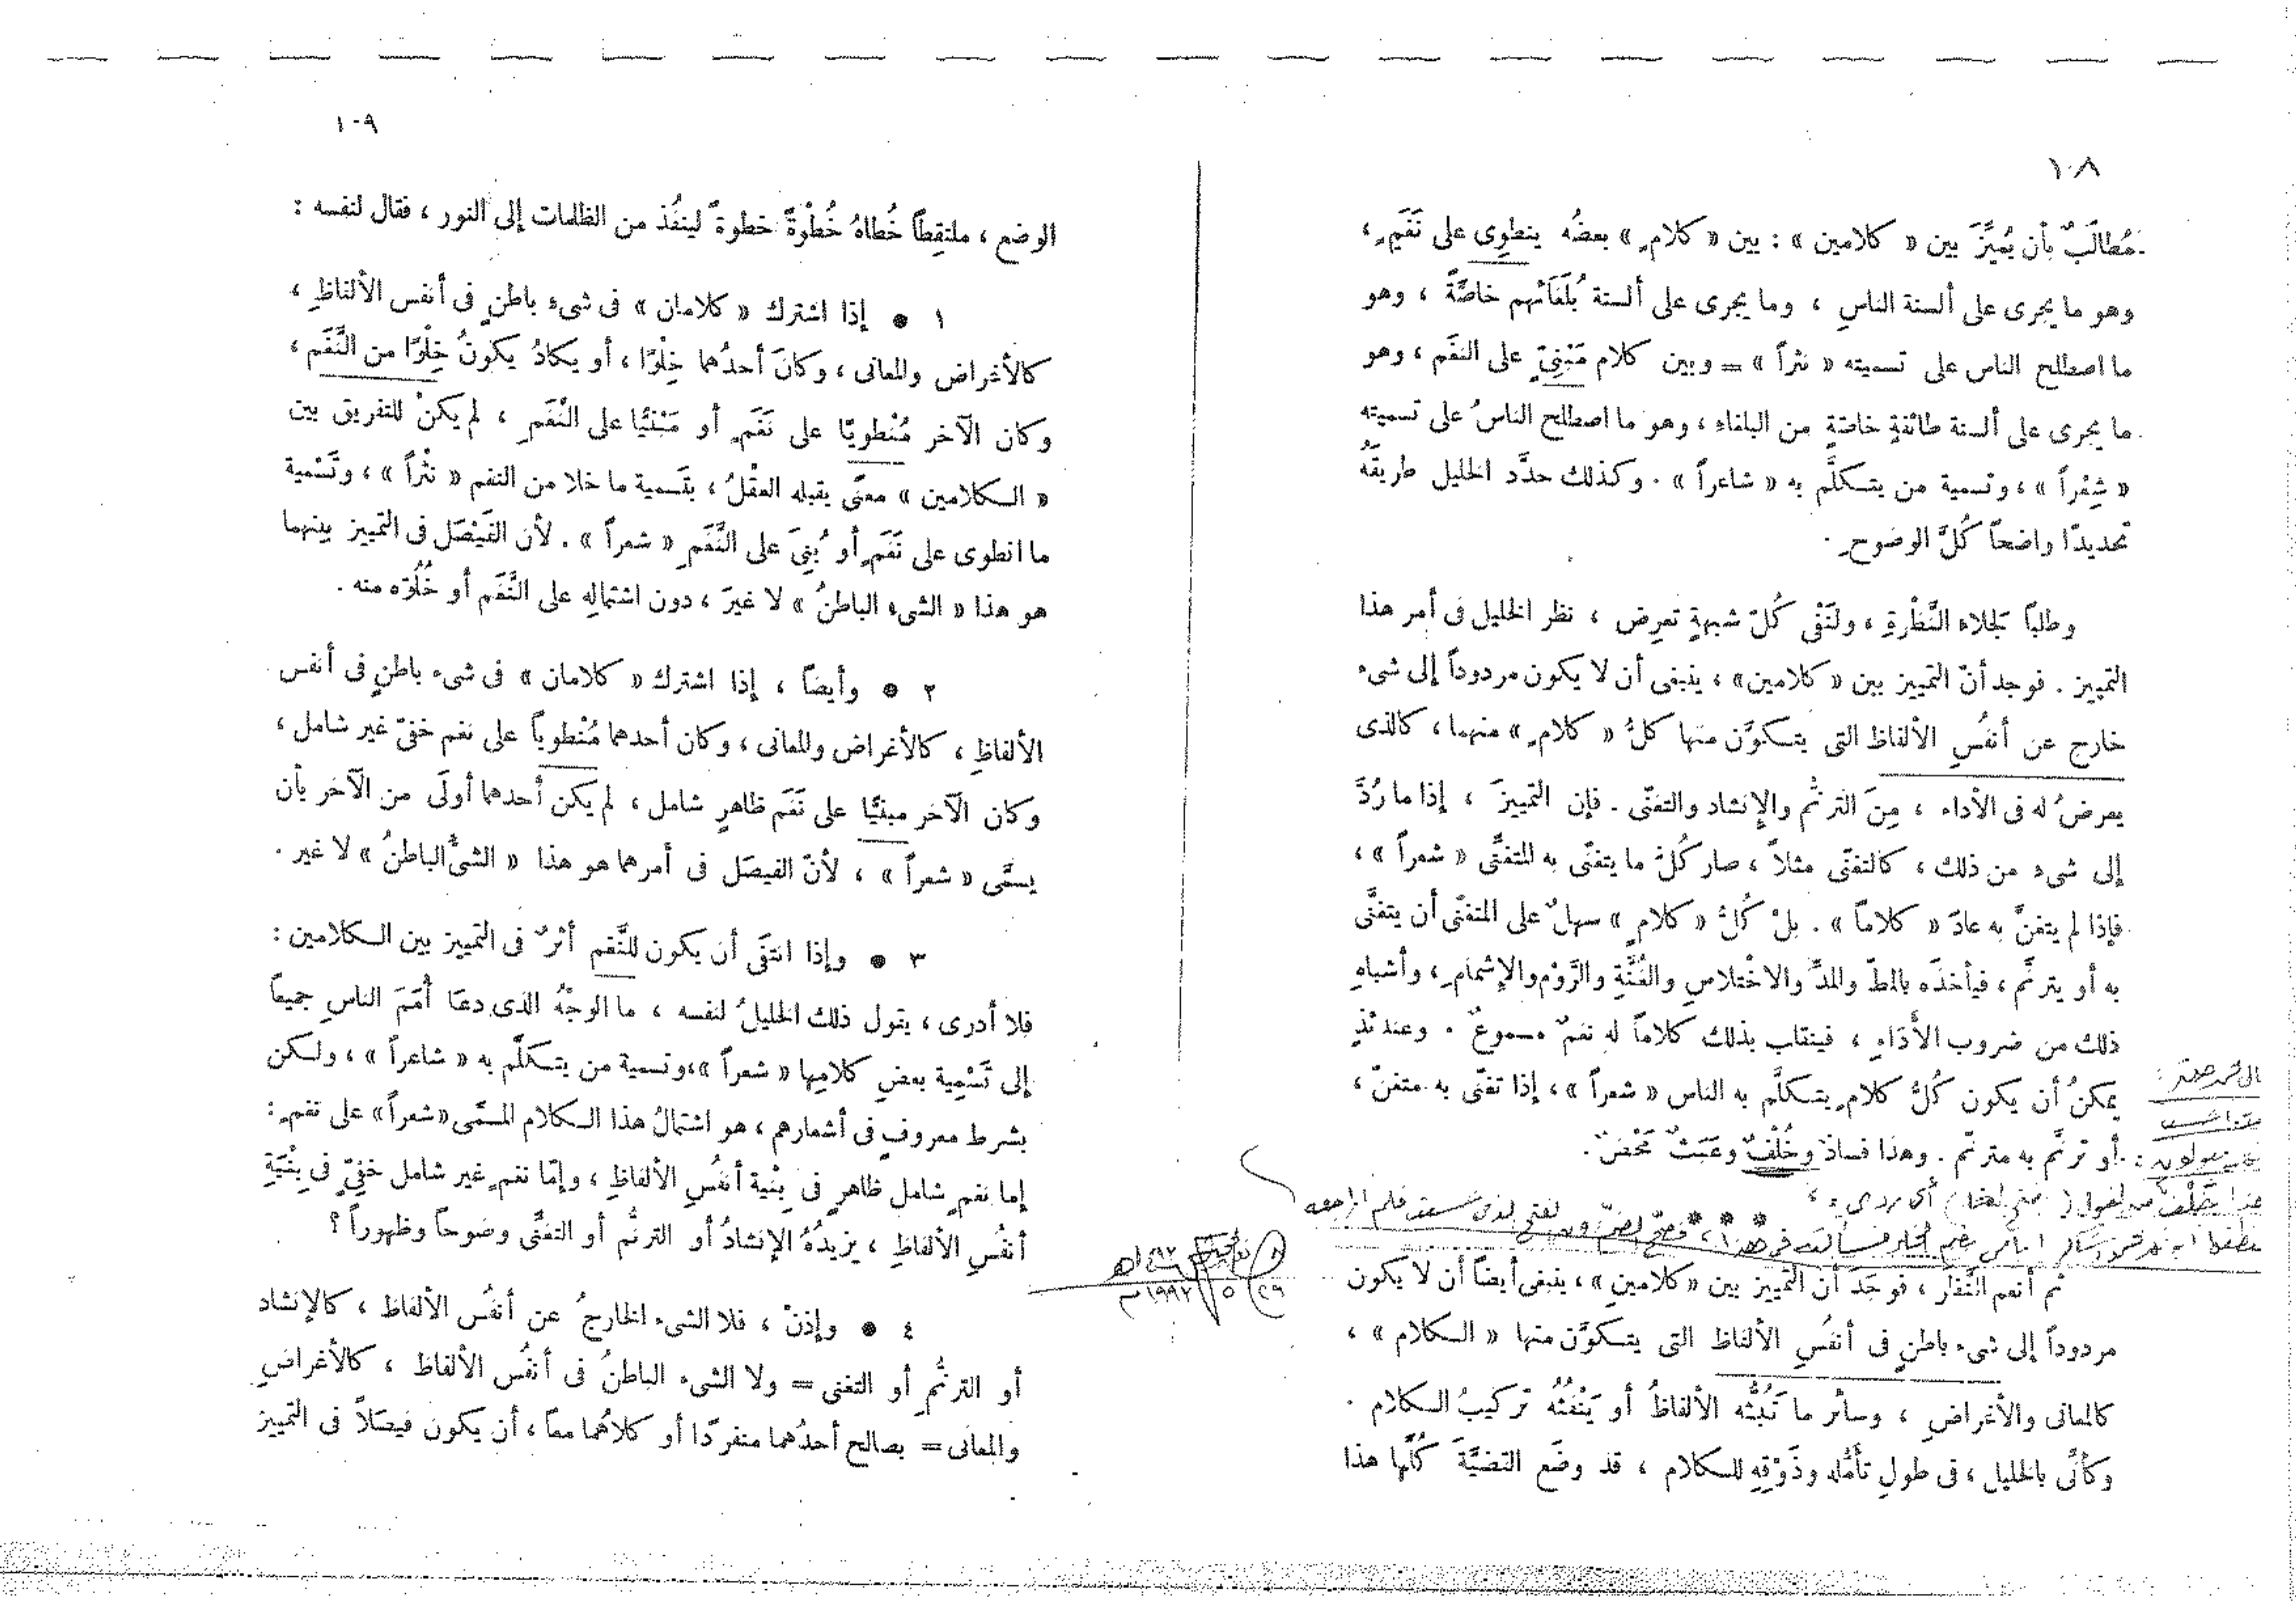 ١٠٨
مُطالَبٌ بأن يُميِّزَ بين « كلامين » : بين « كلامٍ » بعضُه ينطوِى على نَغَمٍ ،
وهو ما يجرى على ألسنة الناسِ ، وما يجرى على ألسنة بُلَغَائهم خاصَّةً ، وهو
ما اصطلح الناس على تسميته « نثراً » = وبين كلام مَبْنِىٍّ على النغَم ، وهو
ما يجرى على ألسنة طائفةٍ خاصّةٍ من البلغاءِ ، وهو ما اصطلح الناسُ على تسميته
« شِعْراً » ، وتسمية من يتكلَّم به « شاعراً » . وكذلك حدَّد الخليل طريقَهُ
تحديدًا واضحاً كُلَّ الوضوحِ .
وطلباً لجلاءِ النَّظْرةِ ، ولنَفْى كُلّ شبهةٍ تعرِض ، نظر الخليل فى أمر هذا
التمييز . فوجد أنّ التمييز بين « كلامين » ، ينبغى أن لا يكون مردوداً إلى شىء
خارج عن أنفُسِ الألفاظ التى يتكوَّن منها كلُّ « كلامٍ » منهما ، كالذى
يعرضُ له فى الأداء ، مِنَ الترنُّم والإنشاد والتغنّى . فإن التمييزَ ، إذا ما رُدَّ
إلى شىء من ذلك ، كالتغنّى مثلاً ، صار كُلُّ ما يتغنّى به المتغنَّى « شعراً » ،
فإذا لم يتغنَّ به عادَ « كلاماً » . بلْ كُلُّ « كلامٍ » سهلٌ على المتغنّى أن يتغنَّى
به أو يترنَّم ، فيأخذَه بالمطّ والمدّ والاخْتلاسِ والغُنَّةِ والرَّوْم والإشمامِ ، وأشباهِ
ذلك من ضروب الأَدَاءِ ، فينقلب بذلك كلاماً له نغمٌ مسموعٌ . وعندئذٍ
يمكنُ أن يكون كُلُّ كلامٍ يتكلَّم به الناس « شعراً » ، إذا تغنّى به متغنّ ،
أو ترنَّم به مترنّم . وهذا فسادٌ وخُلْفٌ وعَبَثٌ مَحْضٌ .
* * *
ثم أنعم النَّظَر ، فوجَدَ أن التمييز بين « كلامينِ » ، ينبغى أيضاً أن لا يكون
مردوداً إلى شىء باطنٍ فى أنفُسِ الألفاظ التى يتكوَّن منها « الكلام » ،
كالمعانى والأغراضِ ، وسائر ما تَبُثُّه الألفاظُ أو يَنْفُثُهُ تركيبُ الكلام .
وكأنّى بالخليل ، فى طولِ تأمُّله وذَوْقِهِ للكلام ، قد وضَع القضيَّةَ كُلَّها هذا
١٠٩
الوضع ، ملتقِطاً خُطاهُ خُطْوةً خطوةً لينفُذ من الظلمات إلى النور ، فقال لنفسه :
١ • إذا اشترك « كلامان » فى شىء باطنٍ فى أنفس الألفاظِ ،
كالأغراض والمعانى ، وكانَ أحدُهما خِلْوًا ، أو يكادُ يكونُ خِلْوًا من النَّغَم ،
وكان الآخر مُنْطويًا على نَغَمٍ أو مَبْنيًّا على النَّغَمِ ، لم يكنْ للتفريق بين
« الكلامين » معنًى يقبله العقْلُ ، بتَسمية ما خلا من النغم « نثْراً » ، وتَسْمية
ما انطوى على نَغَمٍ أو بُنِىَ على النَّغَمِ « شعراً » . لأن الفَيْصَل فى التمييز بينهما
هو هذا « الشىء الباطنُ » لا غيرَ ، دون اشتمالِهِ على النَّغَم أو خُلُوِّه منه .
٢ • وأيضاً ، إذا اشترك « كلامان » فى شىء باطنٍ فى أنفس
الألفاظِ ، كالأغراض والمعانى ، وكان أحدهما مُنْطوياً على نغم خفىّ غير شامل ،
وكان الآخر مبنيًّا على نَغَم ظاهرٍ شامل ، لم يكن أحدهما أولَى من الآخر بأن
يسمَّى « شعراً » ، لأنّ الفيصَل فى أمرهما هو هذا « الشىُّ الباطنُ » لا غير .
٣ • وإذا انتفَى أن يكون للنَّغم أثرٌ فى التمييز بين الكلامين :
فلا أدرى ، يقول ذلك الخليلُ لنفسه ، ما الوجْهُ الذى دعَا أُمَمَ الناسِ جميعاً
إلى تَسْمِية بعضِ كلامِها « شعراً » ، وتسمية من يتكلَّم به « شاعراً » ، ولكن
بشرط معروفٍ فى أشعارهم ، هو اشتمالُ هذا الكلام المسمَّى « شعراً » على نغمٍ :
إما نغمٍ شامل ظاهرٍ فى بِنْية أنفُسِ الألفاظِ ، وإمّا نغمٍ غير شامل خفِىٍّ فى بِنْيَةِ
أنفُسِ الألفاظِ ، يزيدُهُ الإنشادُ أو الترنُّم أو التغنَّى وضوحاً وظهوراً ؟
٤ • وإذنْ ، فلا الشىء الخارجُ عن أنفُس الألفاظ ، كالإنشاد
أو الترنُّمِ أو التغنى = ولا الشىء الباطنُ فى أنفُس الألفاظ ، كالأغراضِ
والمعانى = بصالح أحدُهما منفردًا أو كلاهُما معاً ، أن يكون فيصَلاً فى التمييز